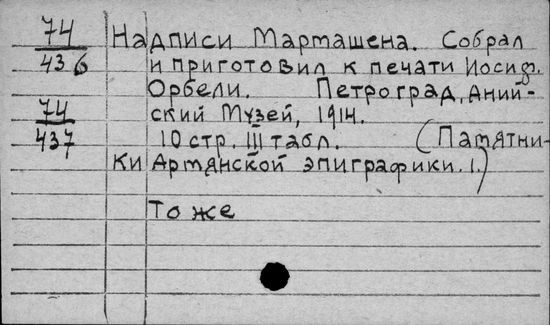 74/436 Надписи Мармашена. Собрал
и приготовил к печати Иосиф.
Орбели. Петроград, Аний-
74/437 ский Музей, 1914.
10 стр. III табл. (Памятни-
ки Армянской эпиграфики. 1.)
То же